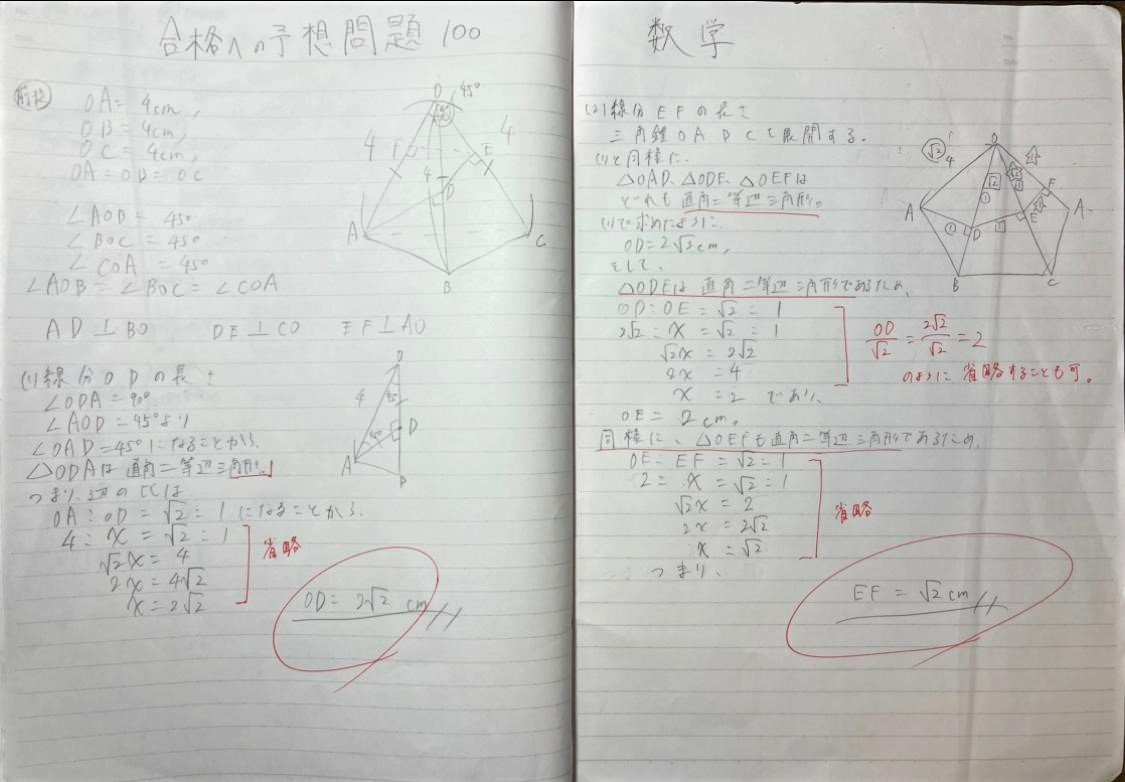 合格への予想問題100
前提
OA = 4cm,
OB = 4cm,
OC = 4cm,
OA = OB = OC
∠AOB = 45°
∠BOC = 45°
∠COA = 45°
∠AOB = ∠BOC = ∠COA
AD⊥BO DE⊥CO EF⊥AO
O
45°
4
4
F
E
4
D
A
C
B
(1)線分ODの長さ
∠ODA = 90°
∠AOD = 45°より
∠OAD = 45°になることから、
△ODAは直角二等辺三角形。
つまり、辺の比は
OA : OD = √2 : 1 になることから、
4 : x = √2 : 1
√2x = 4
2x = 4√2
x = 2√2
省略
OD = 2√2 cm
O
4
45
D
A
数学
(2)線分EFの長さ
三角錐OABCを展開する。
(1)と同様に、
△OAD、△ODE、△OEFは
どれも直角二等辺三角形。
(1)で求めたように、
OD = 2√2cm,
そして、
△ODEは直角二等辺三角形であるため、
OD : OE = √2 : 1
2√2 : x = √2 : 1
√2x = 2√2
2x = 4
x = 2 であり、
OD/√2 = 2√2/√2 = 2
のように省略することも可。
OE = 2cm。
同様に、△OEFも直角二等辺三角形であるため、
OE : EF = √2 : 1
2 : x = √2 : 1
√2x = 2
2x = 2√2
x = √2
省略
つまり、
EF = √2 cm
O
√2
4
A
D
B
C
E
F
A